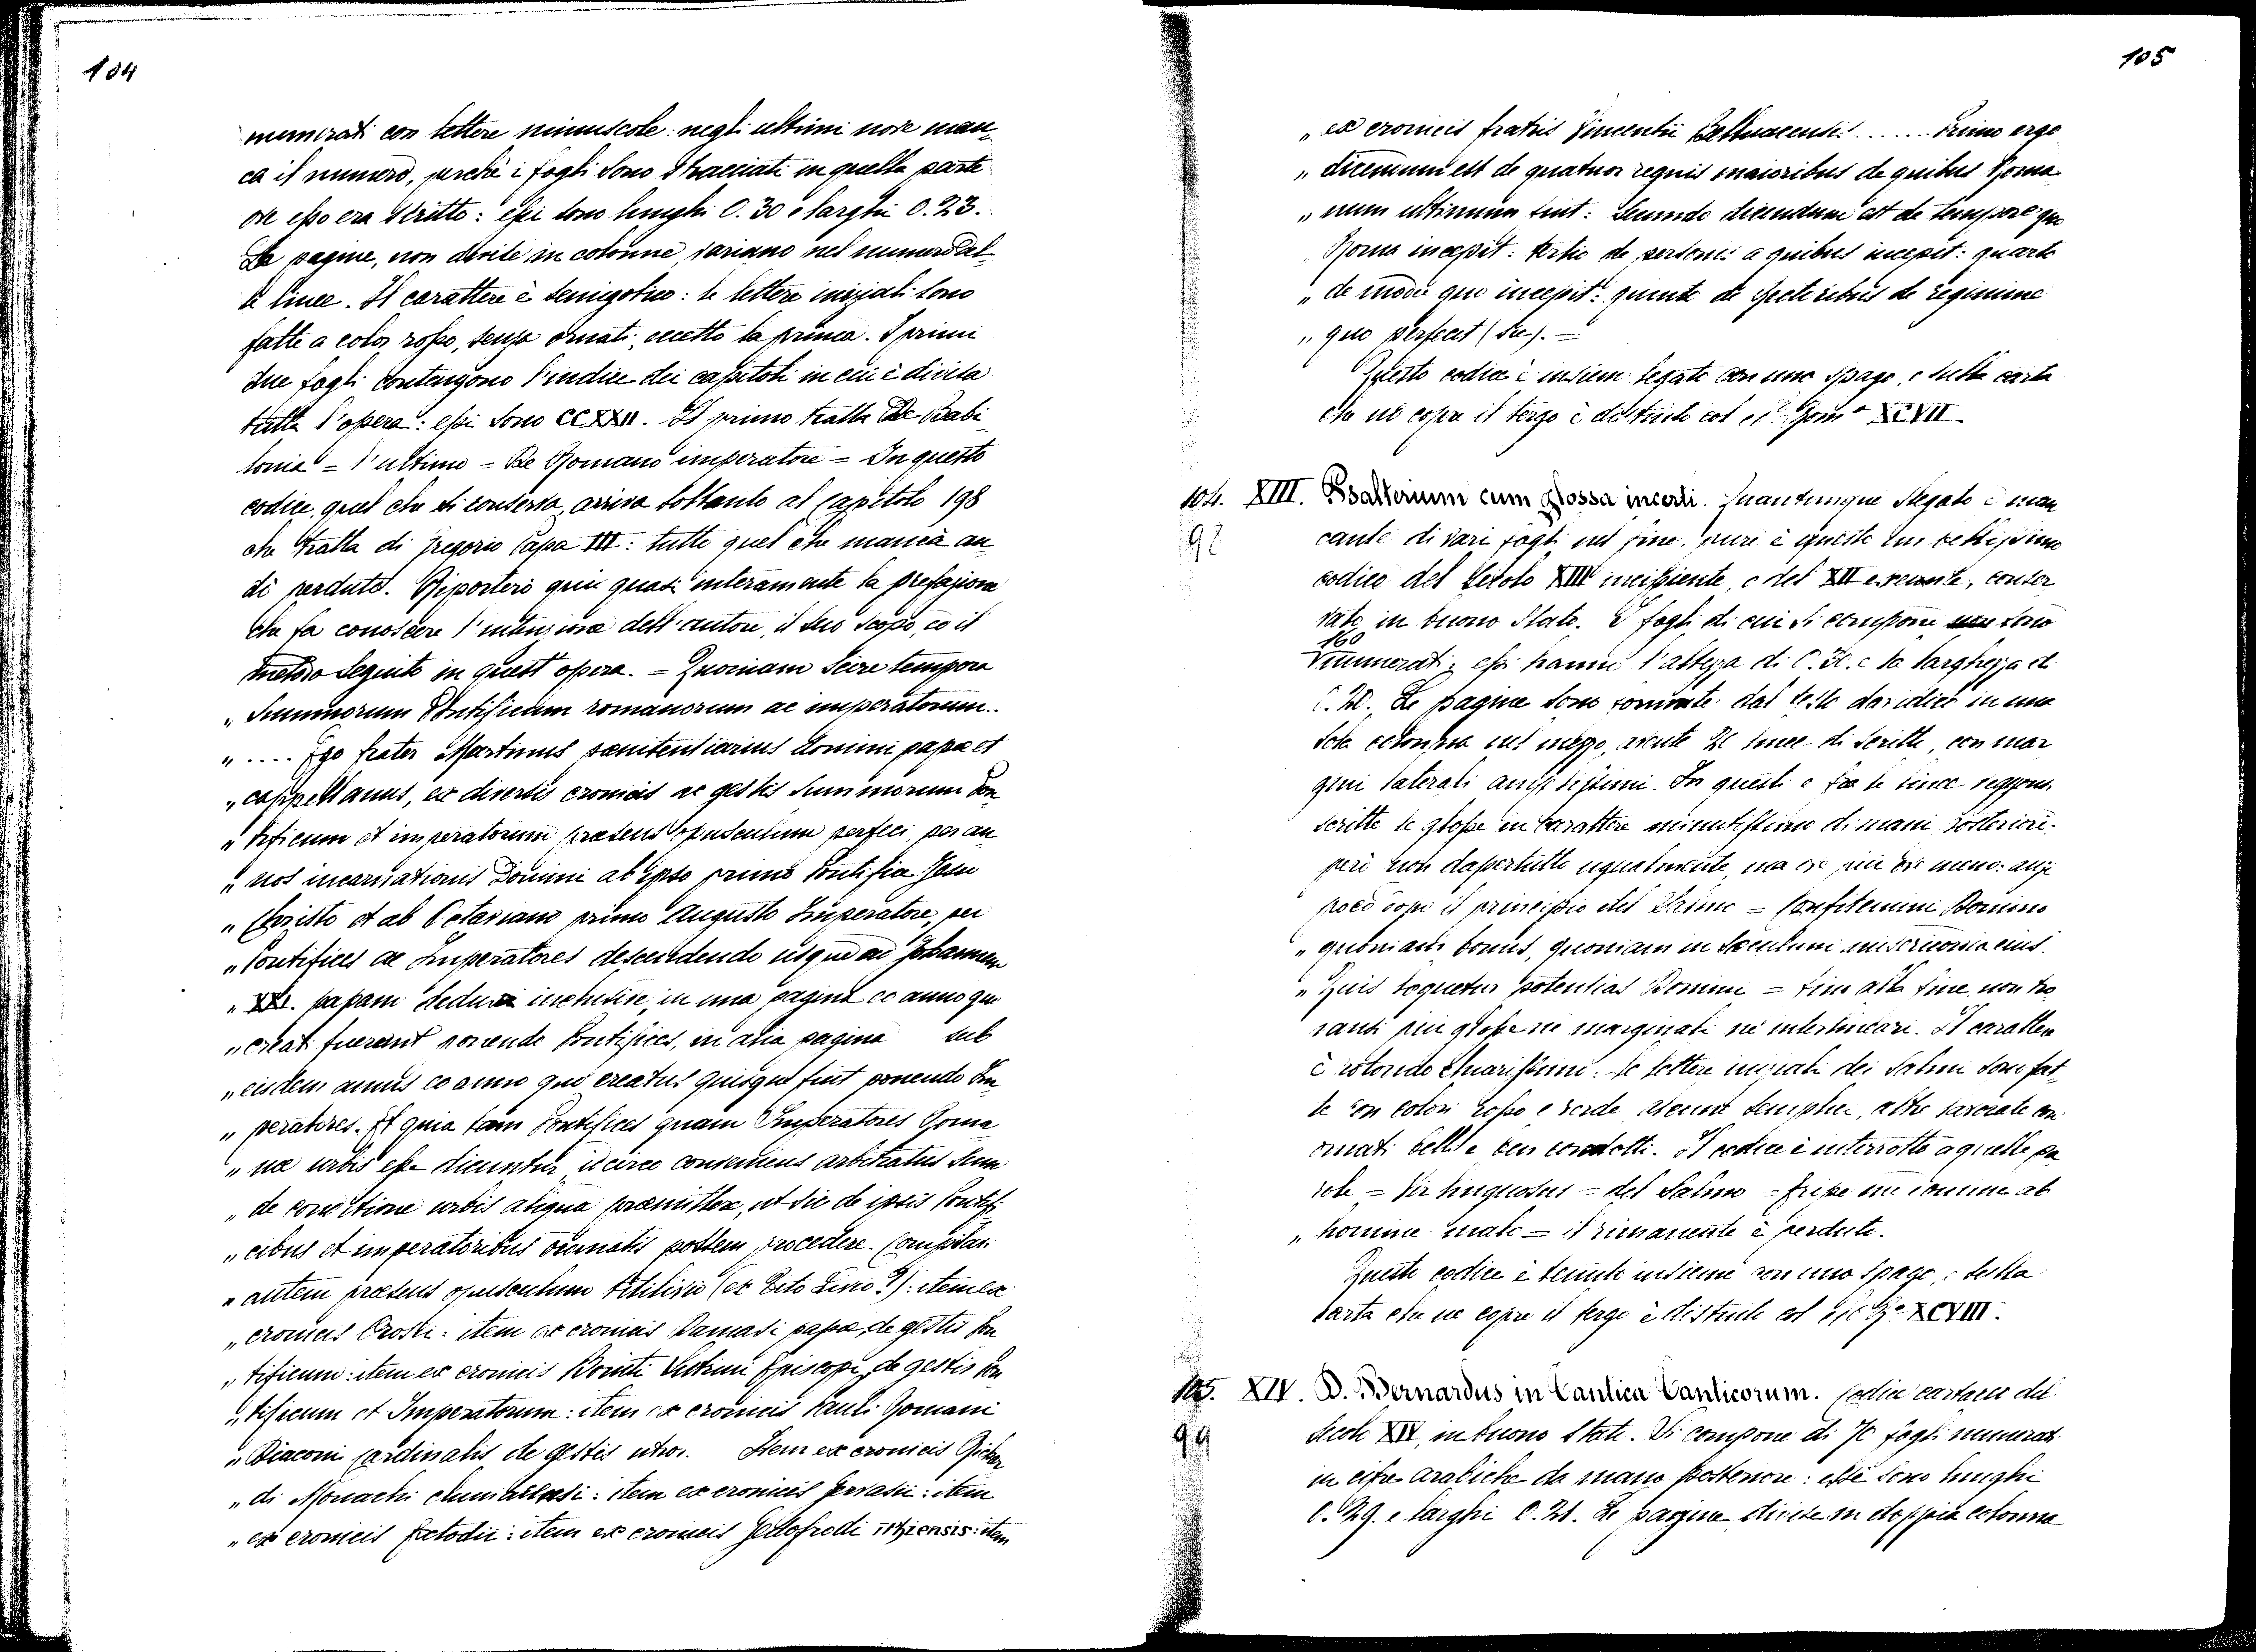 104
numerati con lettere minuscole: negli ultimi nove man„
ca il numero, perchè i fogli sono stracciati in quella parte
ove esso era scritto: essi sono lunghi 0.30 e larghi 0.23.
Le pagine, non divise in colonne, variano nel numero del„
le linee. Il carattere è semigotico: le lettere iniziali sono
fatte a color rosso, senza ornati, eccetto la prima. I primi
due fogli contengono l'indice dei capitoli in cui è divisa
tutta l'opera: essi sono CCXXII. Il primo tratta De Babi„
lonia = l'ultimo = De Romano imperatore = In questo
codice, quel che si conserva, arriva soltanto al Capitolo 198
che tratta di Gregorio Papa III: tutto quel che manca an
dò perduto. Riporterò qui quasi interamente la prefazione
che fa conoscere l'intenzione dell'autore, il suo scopo, e il
metodo seguito in quest'opera. = Quoniam scire tempora
„ Summorum Pontificum romanorum ac imperatorum..
„ .... Ego frater Martinus penitentiarius domini papæ et
„ cappellanus, ex diversis cronicis ac gestis summorum Pon
„ tificum et imperatorum præsens opusculum perfeci, per an
„ nos incarnationis Domini ab ipso primo Pontifice Jesu
„ Christo et ab Octaviano primo Augusto Imperatore, per
„ Pontifices ac Imperatores descendendo usque ad Johannem
„ XXI. papam inclusive, in una pagina eo anno quo
„ creati fuerunt ponendo Pontifices, in alia pagina sub
„ eisdem annis eo anno quo creatus quisque fuit ponendo Im„
„ peratores. Et quia tam Pontifices quam Imperatores Roma
„ næ urbis esse dicuntur idcirco conveniens arbitratus sum
„ de urbis aliqua præmittere, ut sic de ipsis Pontifi
„ cibus et imperatoribus possem procedere. Compilavi
„ autem præsens opusculum Titilivio (ex Tito Livio?): item ex
„ cronicis Orosii: item ex cronicis Damasi papæ, de gestis Pon
„ tificum: item ex cronicis Episcopi, de gestis Pon
„ tificum et Imperatorum: item ex cronicis Pauli Romani
„ Diaconi Cardinalis de gestis utror. Item ex cronicis
„ di Monachi: item ex cronicis Gervasii: item
„ ex cronicis: item ex cronicis: item
105
„ ex cronicis fratris Vincentii Belluacensis....... Primo ergo
„ dicemum est de quatuor regnis maioribus de quibus Roma
„ num ultimum fuit: Secundo dicendum est de tempore quo
Roma incepit: tertio de personis a quibus incepit: quarto
„ de modo quo incepit: quinto de de regimine
„ quo perfecit (sic). =
Questo codice è insieme legato con uno spago, e sulla carta
che ne copre il tergo è distinto col XCVII.
104. XIII. Psalterium cum glossa incerti. Quantunque slegato e man
98
cante di vari fogli nel fine, pure è questo un bellissimo
codice del secolo XIII incipiente, o del XII, conser
vato in buono stato. I fogli di cui si compone sono
160
numerati; essi hanno l'altezza di e la larghezza di
Le pagine sono del testo davidico in una
sola colonna nel mezzo, avente linee di scritto, con mar
gini laterali amplissimi. In questi e fra le linee veggonsi
scritte le glosse in carattere minutissimo di mani posteriori:
però non dapertutto ugualmente, ma ove più ove meno: anzi
poco dopo il principio del Salmo = Confitemini Domino
„ quoniam bonus, quoniam in sæculum misericordia eius.
„ Quis loquetur potentias Domini = fino alla fine non tro
vansi più glosse nè marginali nè interlineari. Il carattere
è rotondo chiarissimo. Le lettere iniziali dei Salmi sono fat„
te con colori rosso e verde, semplici, altre lavorate con
ornati belli e ben condotti. Il codice è interrotto a quelle pa
role = Vir linguosus = del Salmo = Eripe me Domine ab
„ homine malo = il rimanente è perduto.
Questo codice è tenuto insieme con uno spago, e sulla
carta che ne copre il tergo è distinto col XCVIII.
105. XIV. D. Bernardus in Cantica Canticorum. Codice cartaceo del
99
secolo XIV, in buono stato. Si compone di fogli numerati
in cifre arabiche da mano posteriore: essi sono lunghi
0.29. e larghi 0.21. Le pagine, divise in doppia colonna